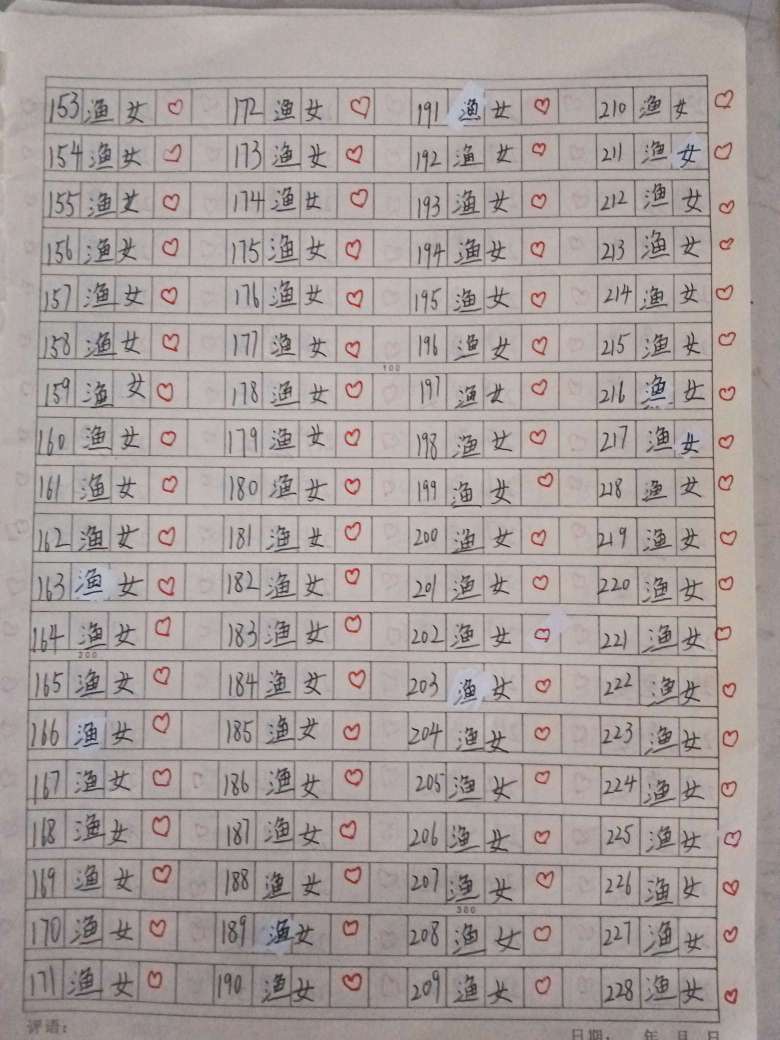 153 渔女 ♡ 172 渔女 ♡ 191 渔女 ♡ 210 渔女 ♡
154 渔女 ♡ 173 渔女 ♡ 192 渔女 ♡ 211 渔女 ♡
155 渔女 ♡ 174 渔女 ♡ 193 渔女 ♡ 212 渔女 ♡
156 渔女 ♡ 175 渔女 ♡ 194 渔女 ♡ 213 渔女 ♡
157 渔女 ♡ 176 渔女 ♡ 195 渔女 ♡ 214 渔女 ♡
158 渔女 ♡ 177 渔女 ♡ 196 渔女 ♡ 215 渔女 ♡
100
159 渔女 ♡ 178 渔女 ♡ 197 渔女 ♡ 216 渔女 ♡
160 渔女 ♡ 179 渔女 ♡ 198 渔女 ♡ 217 渔女 ♡
161 渔女 ♡ 180 渔女 ♡ 199 渔女 ♡ 218 渔女 ♡
162 渔女 ♡ 181 渔女 ♡ 200 渔女 ♡ 219 渔女 ♡
163 渔女 ♡ 182 渔女 ♡ 201 渔女 ♡ 220 渔女 ♡
164 渔女 ♡ 183 渔女 ♡ 202 渔女 ♡ 221 渔女 ♡
200
165 渔女 ♡ 184 渔女 ♡ 203 渔女 ♡ 222 渔女 ♡
166 渔女 ♡ 185 渔女 ♡ 204 渔女 ♡ 223 渔女 ♡
167 渔女 ♡ 186 渔女 ♡ 205 渔女 ♡ 224 渔女 ♡
168 渔女 ♡ 187 渔女 ♡ 206 渔女 ♡ 225 渔女 ♡
169 渔女 ♡ 188 渔女 ♡ 207 渔女 ♡ 226 渔女 ♡
300
170 渔女 ♡ 189 渔女 ♡ 208 渔女 ♡ 227 渔女 ♡
171 渔女 ♡ 190 渔女 ♡ 209 渔女 ♡ 228 渔女 ♡
评语： 日期： 年 月 日